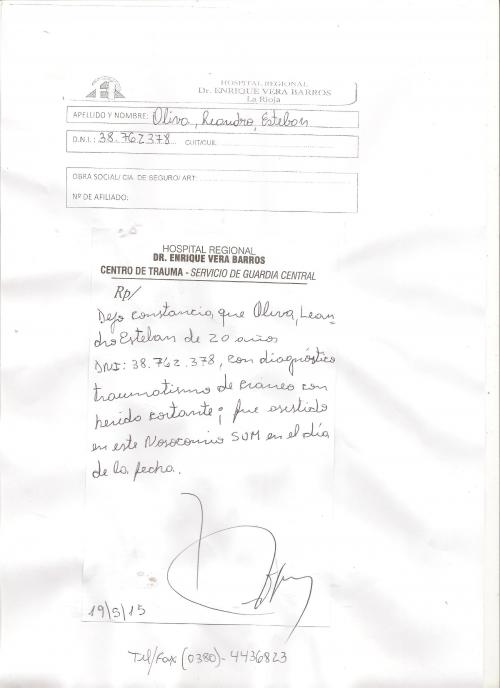 HOSPITAL REGIONAL
Dr. ENRIQUE VERA BARROS
La Rioja
APELLIDO Y NOMBRE: Oliva, Leandro, Esteban
D.N.I.: 38.762378 CUIT/CUIL
OBRA SOCIAL/ CIA. DE SEGURO/ ART:
Nº DE AFILIADO:
HOSPITAL REGIONAL
DR. ENRIQUE VERA BARROS
CENTRO DE TRAUMA - SERVICIO DE GUARDIA CENTRAL
Rp/
Dejo constancia que Oliva, Lean-
dro Esteban de 20 años
DNI: 38.762.378, con diagnóstico
traumatismo de craneo con
herida cortante; fue asistido
en este Nosocomio SUM en el día
de la fecha.
19/5/15
Tel/Fax (0380)- 4436823